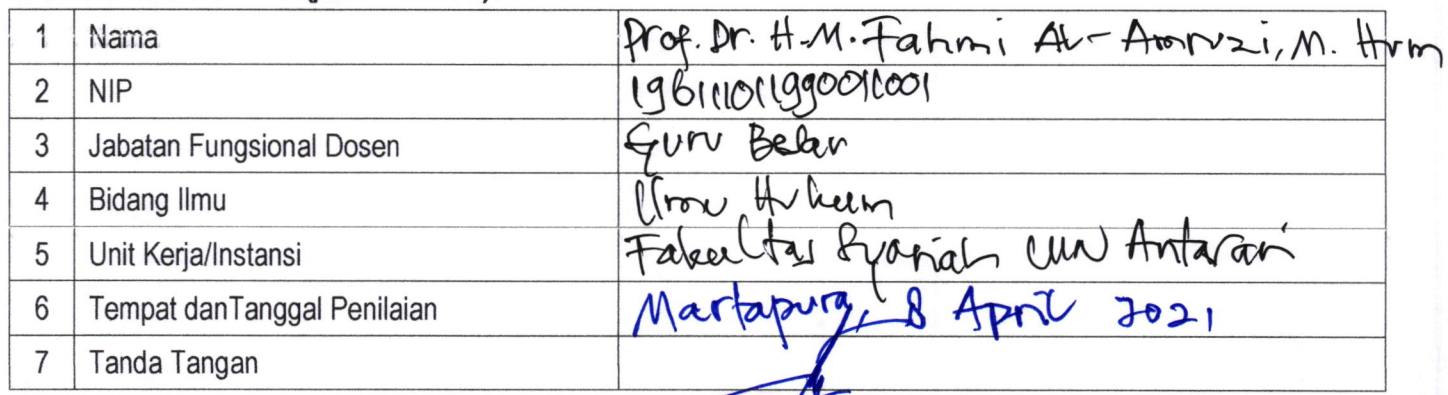 1 Nama Prof. Dr. H.M. Fahmi Al-Amruzi, M. Hum
2 NIP
3 Jabatan Fungsional Dosen Guru Besar
4 Bidang Ilmu Ilmu Hukum
5 Unit Kerja/Instansi Fakultas Syariah UIN Antasari
6 Tempat danTanggal Penilaian Martapura, 8 April 2021
7 Tanda Tangan